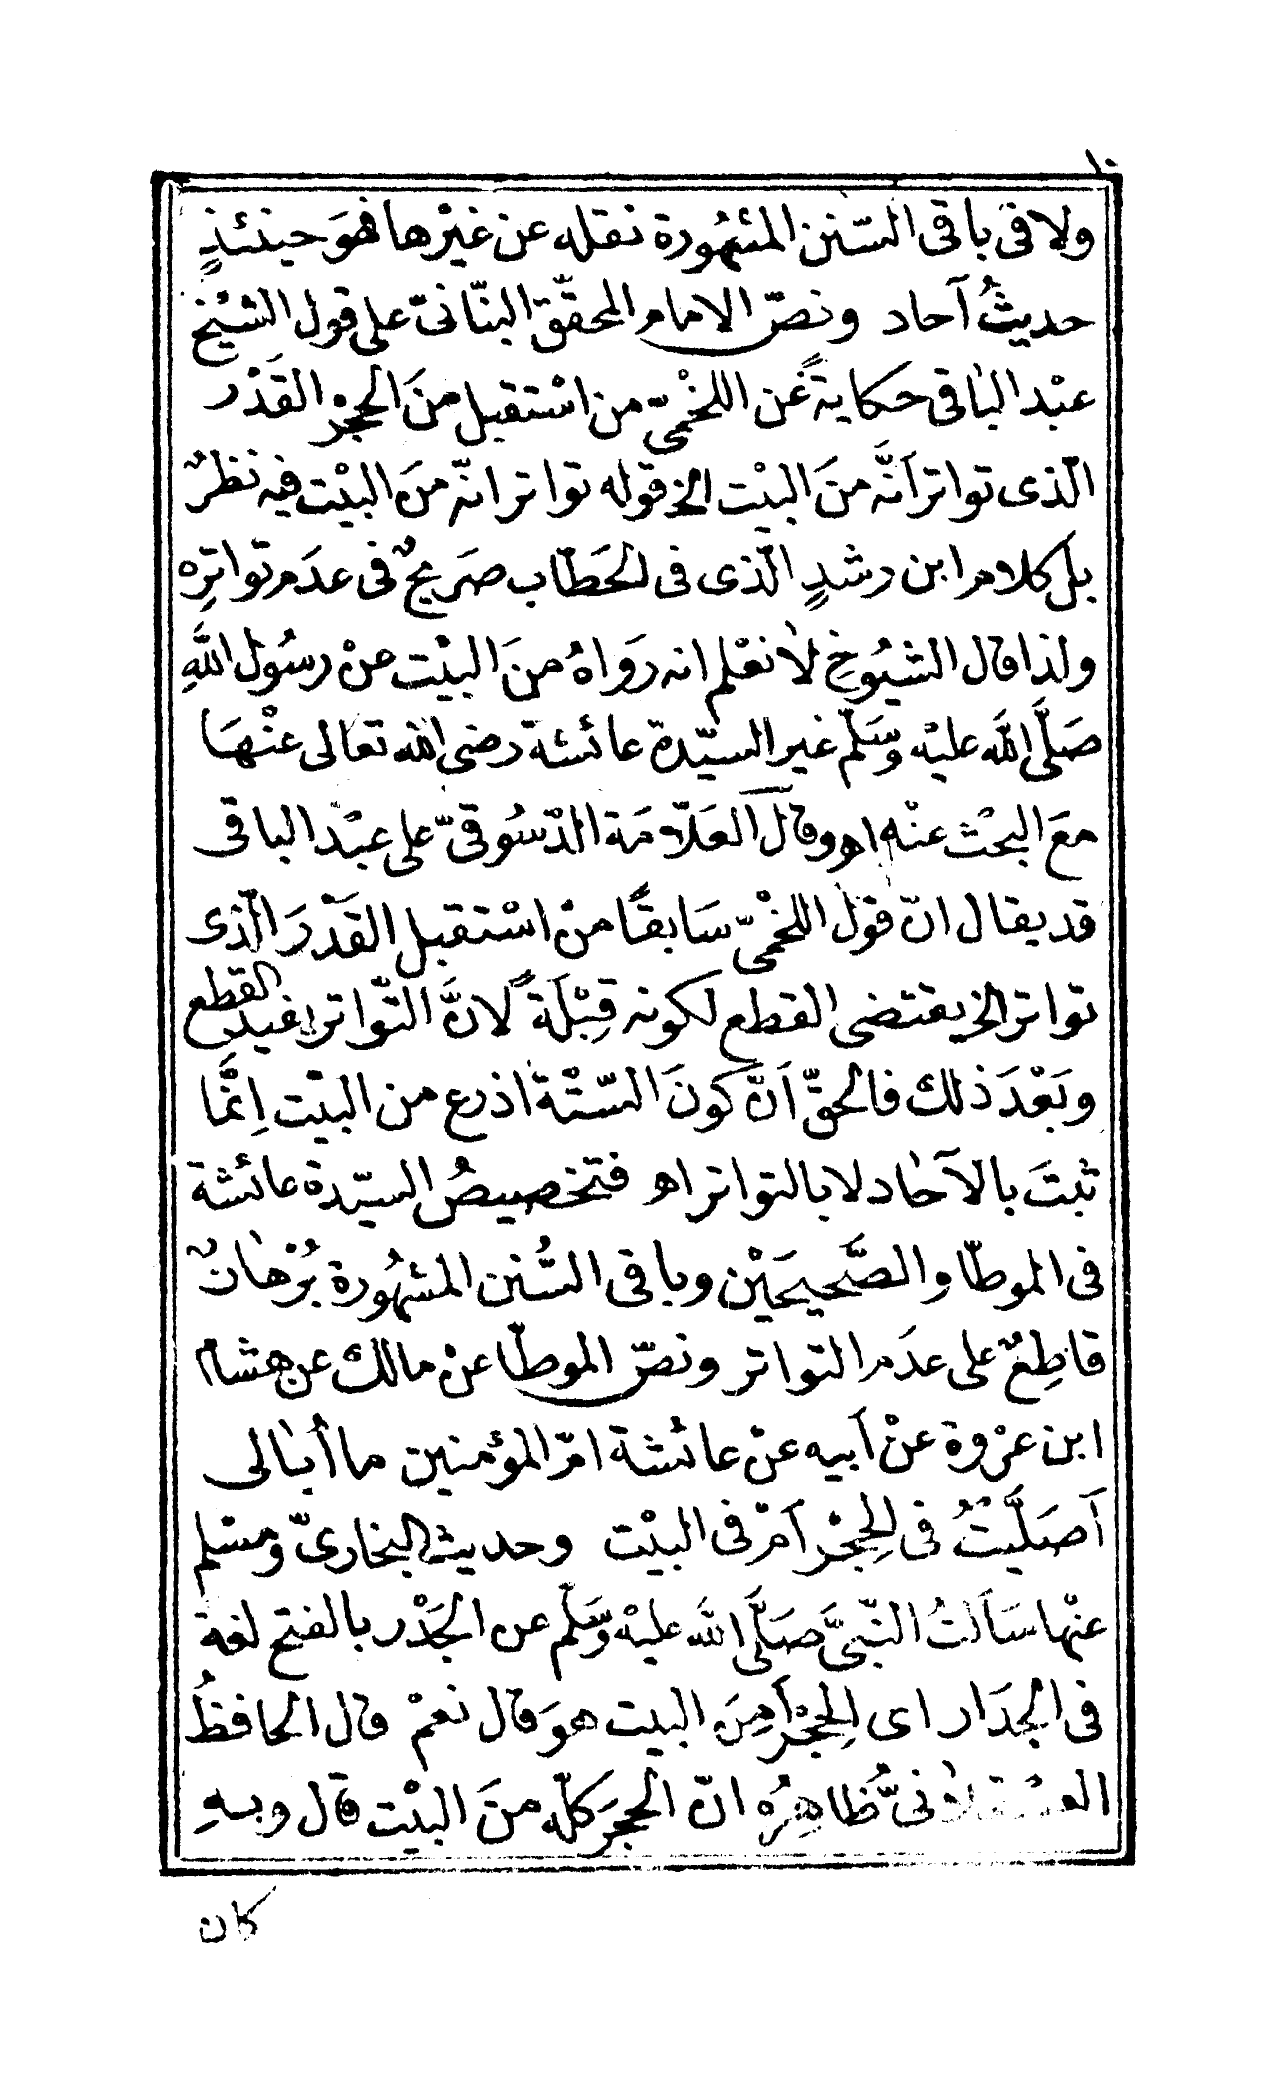 ١٠
ولا فى باقى السّنن المشهُورة نقله عن غيْرها فهوَ حينئذٍ
حديثُ آحاد ونصّ الامام المحقّق البنّانىّ على قول الشيْخ
عبْد الباقى حكايةً عَن اللخْمىّ من اسْتقبل منَ الحِجْر القَدْر
الّذى تواتر اَنَّه منَ البيْت الخ قوله تواتر انّه منَ البيْت فيه نظرٌ
بل كلام ابن رشدٍ الّذى فى الحَطّاب صَريحٌ فى عدَم تواترِه
ولذا قال الشيُوخ لا نعْلم انه رَوَاهُ منَ البيْت منْ رسُول اللَّهِ
صَلَّى اللَّه عليْه وَسَلّم غير السيّدة عائشة رضى الله تعالى عنْهَا
معَ البحْث عنْه اهـ وقال العَلّامَة الدّسُوقىّ على عبْد الباقى
قد يقال انّ قولَ اللخْمىّ سَابقًا منْ اسْتقبل القَدْرَ الّذى
تواتر الخ يقتضى القطع لكونه قِبْلَةً لانَّ التّواتر يفيد القطع
وبَعْدَ ذلك فالحقّ اَنّ كونَ السّتّة اذرع من البيْت اِنَّما
ثبتَ بالآحَاد لا بالتواتر اهـ فتخصيصُ السيّدة عائشة
فى الموطّا والصَّحيحَيْن وباقى السُّنن المشهُورة بُرْهَانٌ
قاطِعٌ على عدَم التواتر ونصّ الموطّا عنْ مالك عن هشام
ابن عرْوة عنْ اَبيه عنْ عائشة امّ المؤمنين ما أبَالى
اَصَلَّيْتُ فى الحِجْر اَمْ فى البيْت وحديث البخارىّ ومسْلم
عنْها سَاَلتُ النّبىَّ صَلَّى اللَّه عليْه وَسَلّم عن الجَدْر بالفتح لغة
فى الجدَار اى الحِجْر اَمِنَ البيت هوَ قال نعمْ قال الحافظُ
العسْقلانىُّ ظاهِرُه انّ الحجرَ كلّه منَ البيْت قال وبهِ
كان